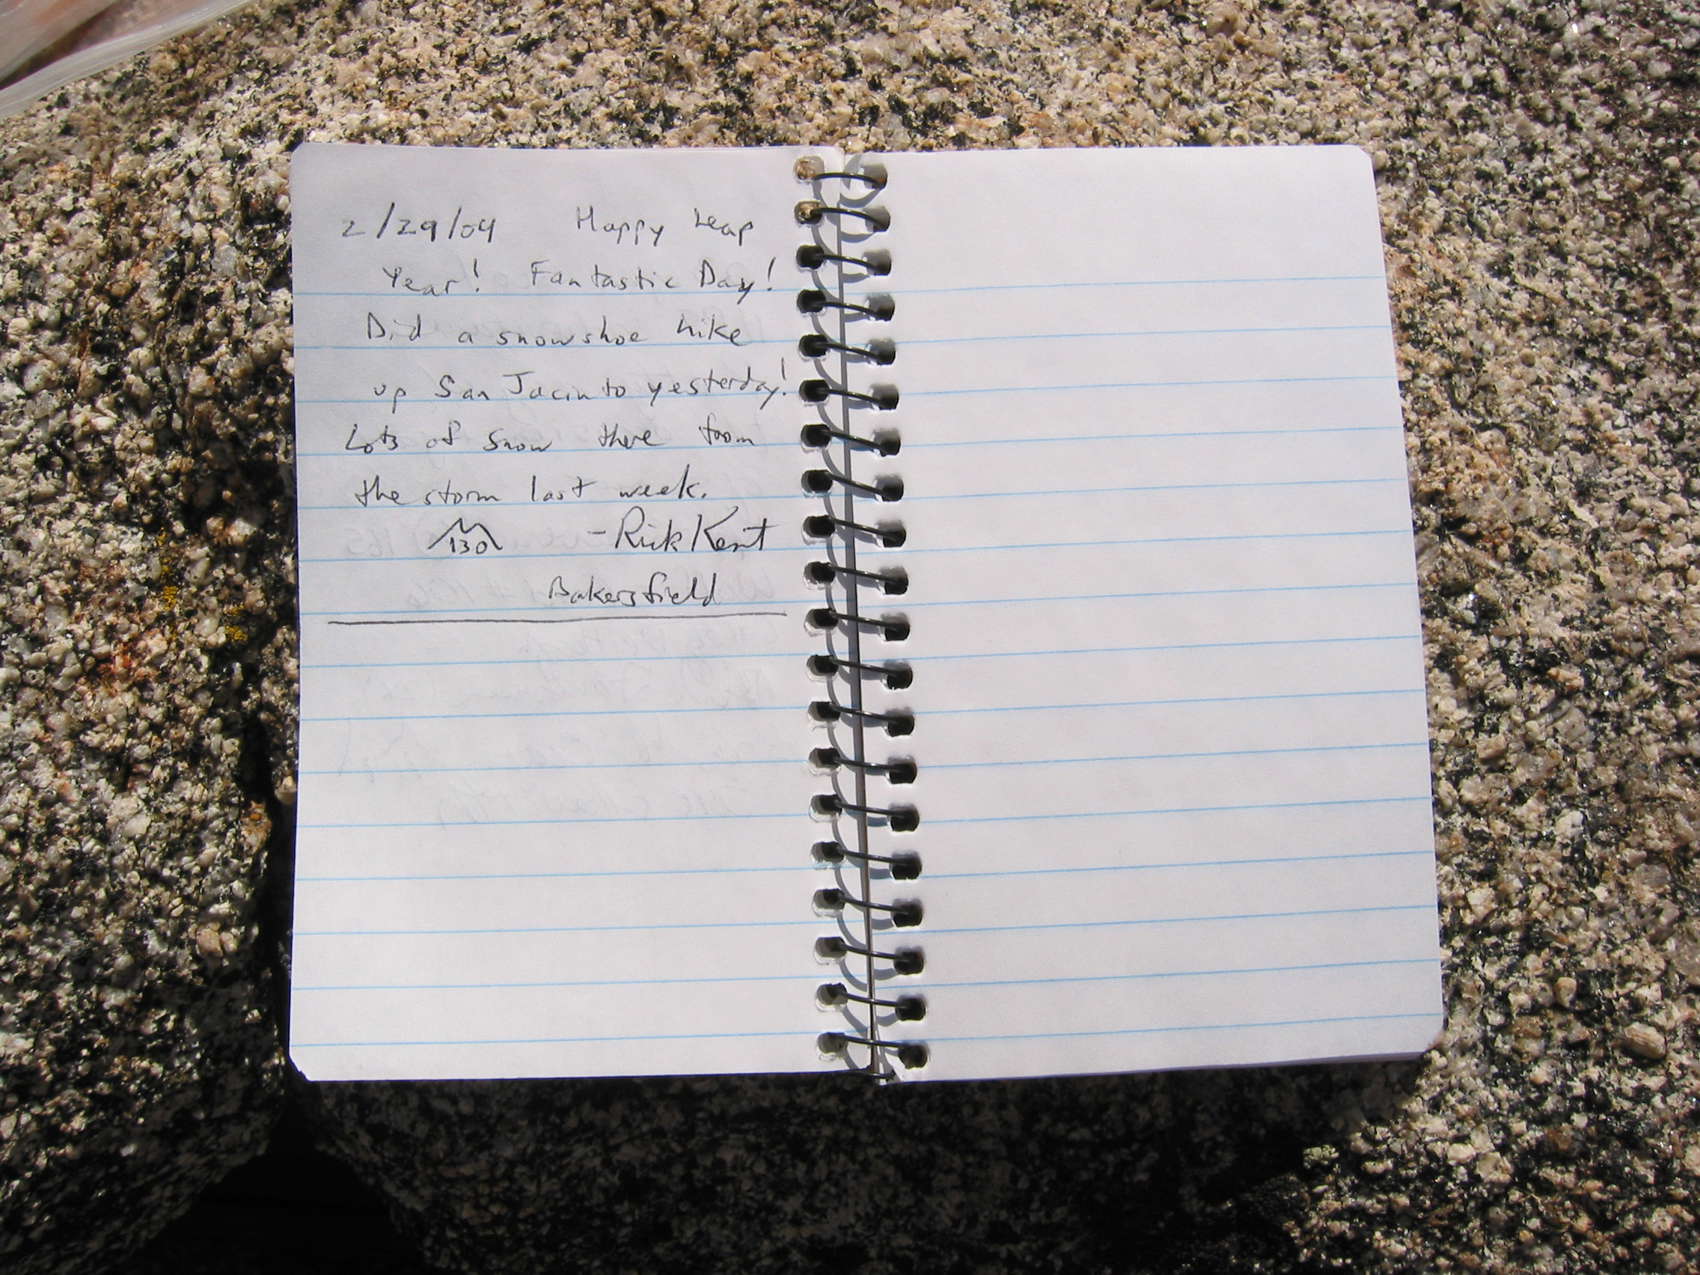 2/29/04 Happy Leap
Year! Fantastic Day!
Did a snowshoe hike
up San Jacinto yesterday!
Lots of snow there from
the storm last week.
130 - Rick Kent
Bakersfield